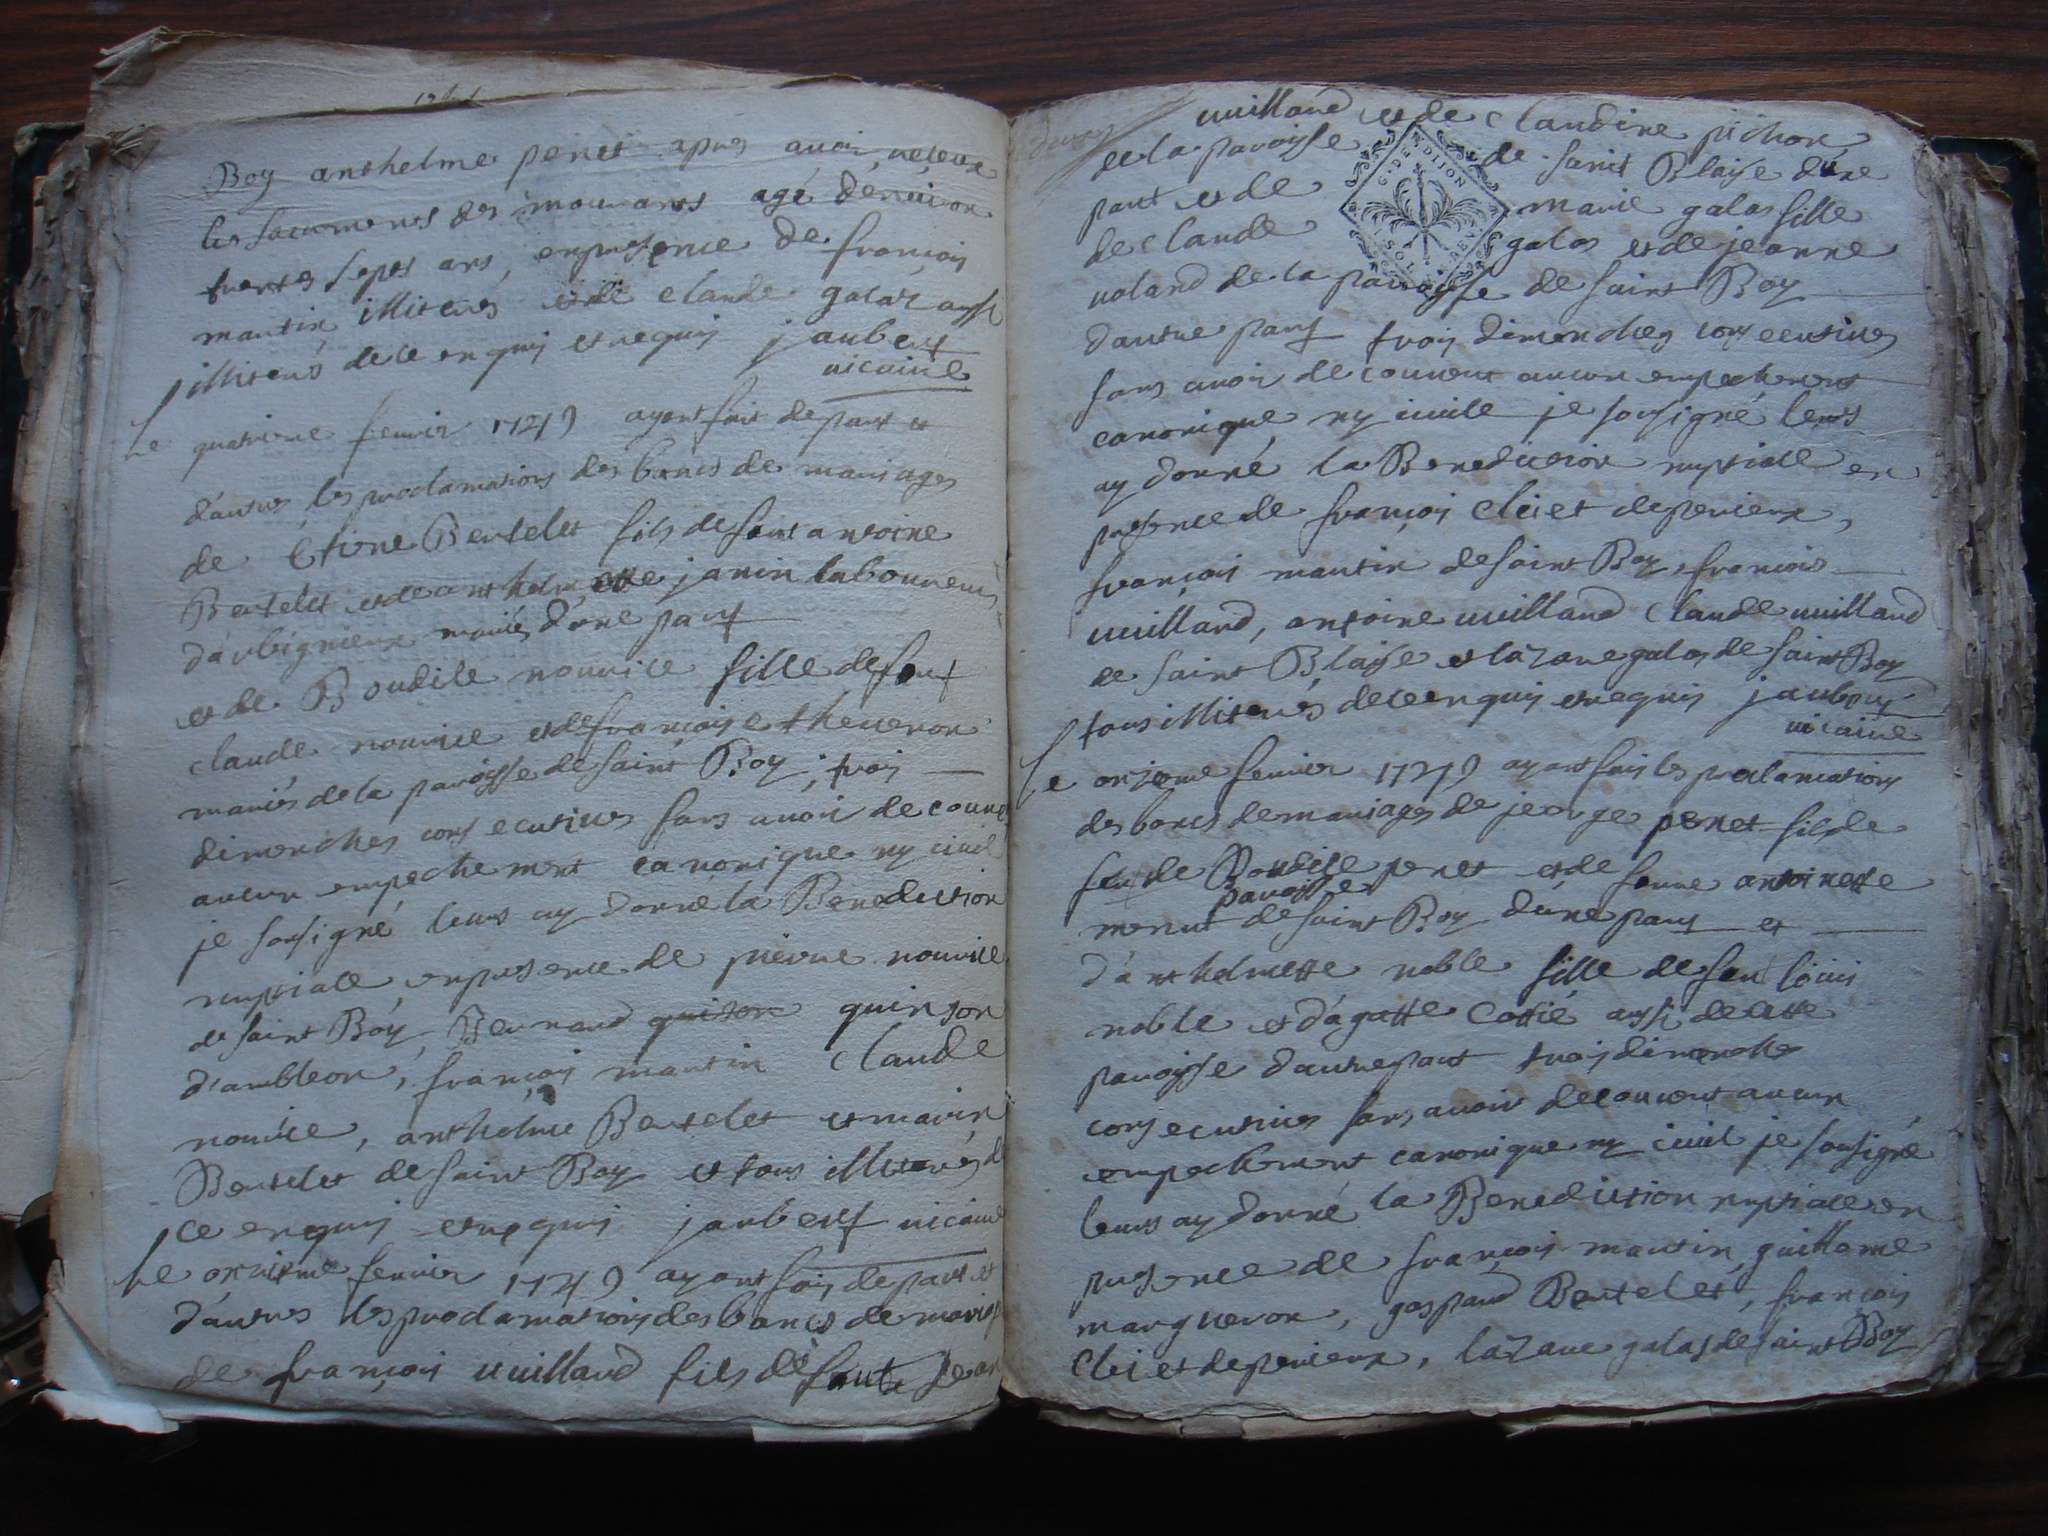 Boy anthelme peret apres avoir receue
les sacuments des mouvants agé d'énviron
trentes septs ans, enpresence de françois
martin illiterés et de claude galaz aussi
illiterés de ce enquis et requis jaubert
vicaire
Le quatrieme fevrier 1749 ayant fait de part et
d'autres les proclamations des bancs de mariages
de Etiene Bertelet fils de font antoine
Bertelet et de anthelmette janin laboureurs
d'arbignieux mariés d'une part
et de Boudile nourice fille de font
claude nourice et de françoise theveron
mariés de la paroysse de saint Boy; trois
dimenches consecutives sans avoir de couve
aucun empechement canonique ny civil
je sousigné leurs ay donne la Benediction
nuptiale enpresence de pierre nourice
de saint Boy, Bernard quinson
d'ambleon, françois martin claude
nourice, anthelme Bertelet et marin
Bertelet de saint Boy et tous illiterés d
ce enquis et requis jaubert vicaire
Le onzieme fevrier 1749 ayant fais de part et
d'autres les proclamations des bancs de mariag
de françois vuilland fils de Jean
vuilland et de claudine pichon
de la paroisse de saint Blaise d'une
part et de marie galas fille
de claude galas et de jeanne
voland de la paroysse de saint Boy
d'autre part trois dimenches consecutives
sans avoir de couvert aucun empechement
canonique ny civile je sousigné leurs
ay donné la Benediction nuptiale en
presence de françois cleiet de perieux,
françois martin de saint Boy, françois
vuilland, antoine vuilland claude vuilland
de saint Blaise et lazare galas de saint Boy
tous illiterés de ce enquis et requis jaubert
vicaire
Le onzieme fevrier 1749 ayant fais les proclamations
des bancs de mariages de jeorge peret fils de
feu de Boudile peret et de feue antoinette
paroysse
menut de saint Boy d'une part et
d'anthelmette noble fille de feu loüis
noble et d'agatte Cottié aussi de cette
paroysse d'autre part trois dimenches
consecutives sans avoir decouvert aucun
empechement canonique ny civil je sousigné
leurs ay donné la Benediction nuptiale en
presence de françois martin, guillome
margueron, gaspard Bertelet, françois
Cleiet de perieux, lazare galas de saint Boy